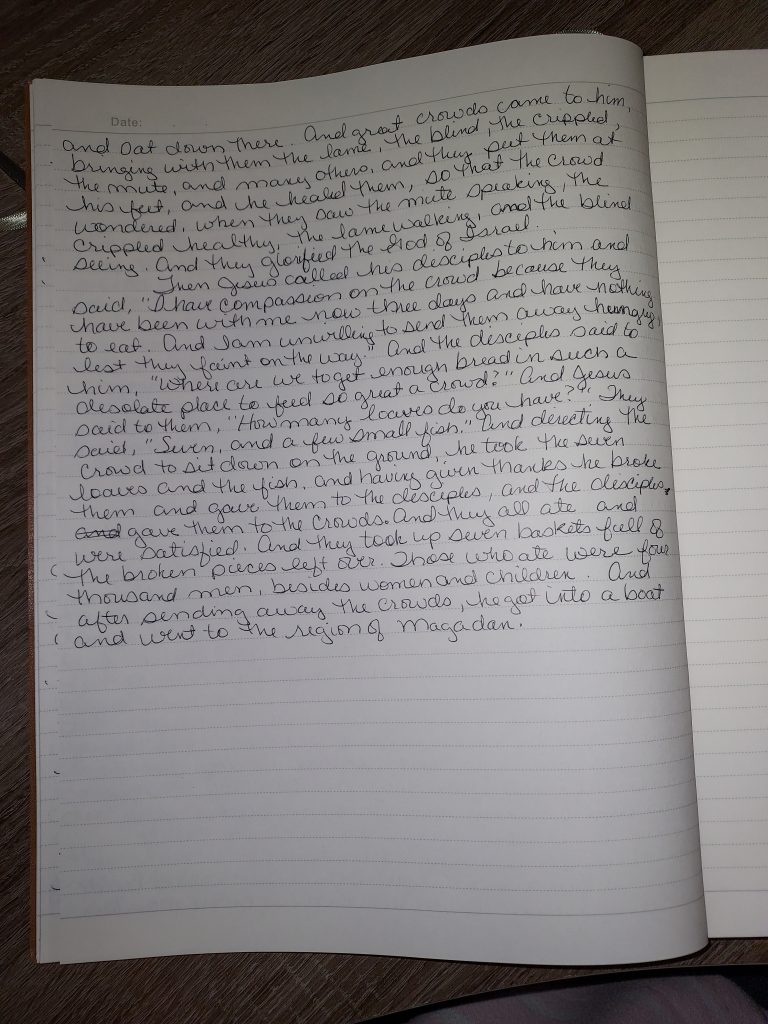 Date:
and sat down there. And great crowds came to him,
bringing with them the lame, the blind, the crippled,
the mute, and many others, and they put them at
his feet, and he healed them, so that the crowd
wondered, when they saw the mute speaking, the
crippled healthy, the lame walking, and the blind
seeing. And they glorified the God of Israel.
Then Jesus called his disciples to him and
said, "I have compassion on the crowd because they
have been with me now three days and have nothing
to eat. And I am unwilling to send them away hungry,
lest they faint on the way." And the disciples said to
him, "Where are we to get enough bread in such a
desolate place to feed so great a crowd?" And Jesus
said to them, "How many loaves do you have?" They
said, "Seven, and a few small fish." And directing the
crowd to sit down on the ground, he took the seven
loaves and the fish, and having given thanks he broke
them and gave them to the disciples, and the disciples,
and gave them to the crowds. And they all ate and
were satisfied. And they took up seven baskets full of
the broken pieces left over. Those who ate were four
thousand men, besides women and children. And
after sending away the crowds, he got into a boat
and went to the region of Magadan.